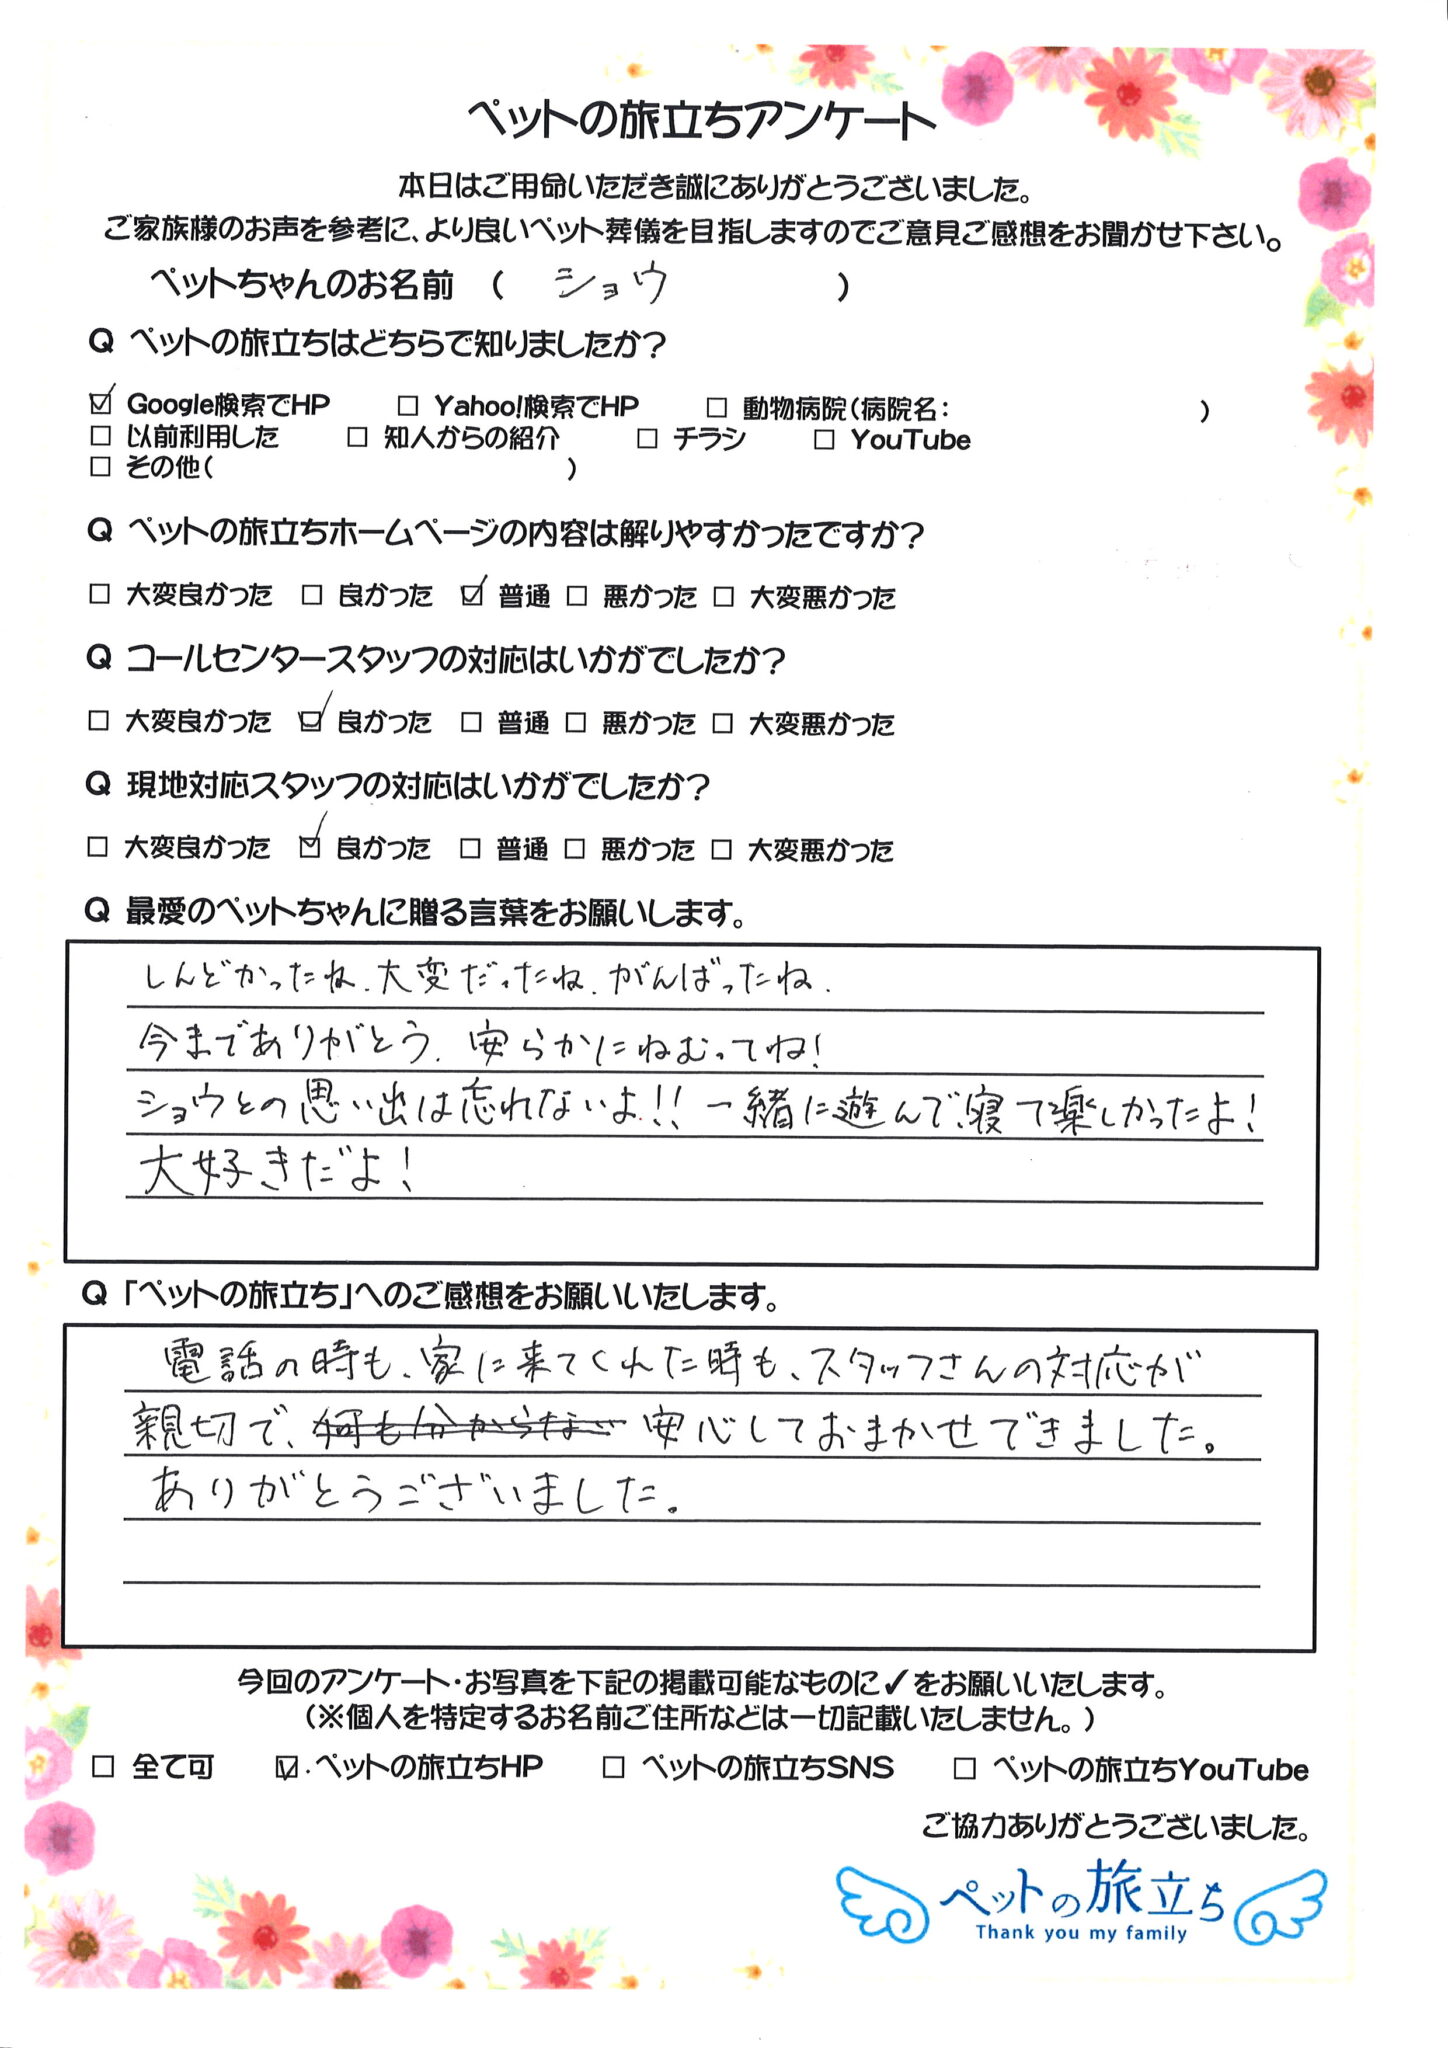 ペットの旅立ちアンケート
本日はご用命いただき誠にありがとうございました。
ご家族様のお声を参考に、より良いペット葬儀を目指しますのでご意見ご感想をお聞かせ下さい。
ペットちゃんのお名前 ( ショウ )
Q ペットの旅立ちはどちらで知りましたか？
☑ Google検索でHP □ Yahoo!検索でHP □ 動物病院(病院名： )
□ 以前利用した □ 知人からの紹介 □ チラシ □ YouTube
□ その他( )
Q ペットの旅立ちホームページの内容は解りやすかったですか？
□ 大変良かった □ 良かった ☑ 普通 □ 悪かった □ 大変悪かった
Q コールセンタースタッフの対応はいかがでしたか？
□ 大変良かった ☑ 良かった □ 普通 □ 悪かった □ 大変悪かった
Q 現地対応スタッフの対応はいかがでしたか？
□ 大変良かった ☑ 良かった □ 普通 □ 悪かった □ 大変悪かった
Q 最愛のペットちゃんに贈る言葉をお願いします。
しんどかったね. 大変だったね. がんばったね.
今までありがとう. 安らかにねむってね!
ショウとの思い出は忘れないよ!! 一緒に遊んで、寝て楽しかったよ!
大好きだよ!
Q 「ペットの旅立ち」へのご感想をお願いいたします。
電話の時も、家に来てくれた時も、スタッフさんの対応が
親切で、何も分からない 安心しておまかせできました。
ありがとうございました。
今回のアンケート・お写真を下記の掲載可能なものに✓をお願いいたします。
（※個人を特定するお名前ご住所などは一切記載いたしません。）
□ 全て可 ☑ ペットの旅立ちHP □ ペットの旅立ちSNS □ ペットの旅立ちYouTube
ご協力ありがとうございました。
ペットの旅立ち
Thank you my family